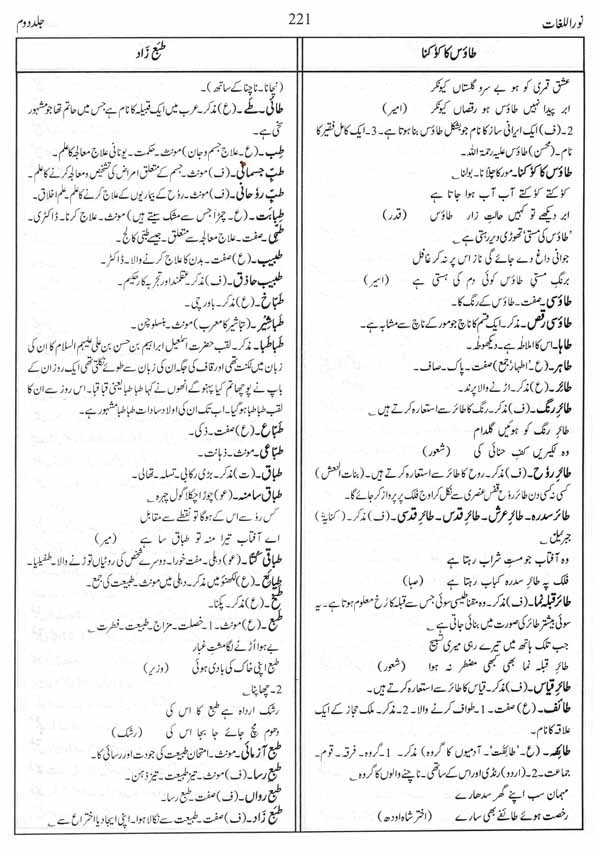 نور اللغات
221
جلد دوم
طاؤس کا کوُکنا
عشق قمری کو ہو بے سرو گلستاں کیونکر
ابر پیدا نہیں طاؤس ہو رقصاں کیونکر (امیر)
2۔ (ف) ایک ایرانی ساز کا نام جو بشکل طاؤس بنا ہوتا ہے۔ 3۔ ایک کامل فقیر کا
نام۔ (محسن) طاؤس علیہ رحمتہ اللہ۔
طاؤس کا کوُکنا۔ مور کا چلّانا۔ بولنا
کوُکتے کوُکتے آپ آپ ہوا جاتا ہے
ابر دیکھے تو کہیں حالتِ زار طاؤس (قدر)
'طاؤس کی مستی تھوڑی دیر رہتی ہے
جوانی داغ دے جائے گی ناز اس پر نہ کر غافل
برنگِ مستیِ طاؤس کوئی دم کی ہستی ہے (اسیر)
طاؤسی۔ صفت۔ طاؤس کے رنگ کا۔
طاؤسی رقص۔ مذکر۔ ایک قسم کا ناچ جو مور کے ناچ سے مشابہ ہے۔
طاہا۔ اس کا املا طٰہٰ ہے۔ دیکھو طٰہٰ۔
طاہر۔ (ع۔ اطہار جمع) صفت۔ پاک۔ صاف۔
طائر۔ (ع) مذکر۔ اڑنے والا پرند۔
طائرِ رنگ۔ (ف) مذکر۔ رنگ کا طائر سے استعارہ کرتے ہیں۔
طائرِ رنگ کو ہوئیں گلدام
وہ لکیریں کفِ حنائی کی (شعور)
طائرِ روُح۔ (ف) مذکر۔ روح کا طائر سے استعارہ کرتے ہیں۔ (بنات النعش)
کسی نہ کسی دن طائر روُح قفس عنصری سے نکل کر اوج فلک پر پرواز کر جائے گا۔
طائرِ سدرہ۔ طائرِ عرش۔ طائرِ قدس۔ طائرِ قدسی۔ (ف) مذکر۔ (کنایۃً)
جبرئیلؑ
وہ آفتاب جو مستِ شراب رہتا ہے
فلک پہ طائرِ سدرہ کباب رہتا ہے (صبا)
طائر قبلہ نما۔ (ف) مذکر۔ وہ مقناطیسی سوئی جس سے قبلہ کا رُخ معلوم ہوتا ہے۔ یہ
سوئی بیشتر طائر کی صورت میں بنائی جاتی ہے
جب تلک ہاتھ میں تیرے رہی میری تسبیح
طائرِ قبلہ نما بھی کبھی مضطر نہ ہوا (شعور)
طائرِ قیاس۔ (ف) مذکر۔ قیاس کا طائر سے استعارہ کرتے ہیں۔
طائف۔ (ع) صفت۔ 1۔ طواف کرنے والا۔ 2۔ مذکر۔ ملک حجاز کے ایک
علاقہ کا نام۔
طائفہ۔ (ع۔ 'طائفت'۔ آدمیوں کا گروہ) مذکر۔ 1۔ گروہ۔ فرقہ۔ قوم۔
جماعت۔ 2۔ (اردو) رنڈی اور اس کے ساتھی۔ ناچنے والوں کا گروہ
مہمان سب اپنے گھر سدھارے
رخصت ہوئے طائفے بھی سارے (اختر شاہ اودھ)
طبع زاد
(نچانا۔ ناچنا کے ساتھ)۔
طائی۔ طے۔ (ع) مذکر۔ عرب میں ایک قبیلہ کا نام ہے جس میں حاتم تھا جو مشہور
سخی ہے۔
طِب۔ (ع۔ علاج جسم و جان) مونث۔ حکمت۔ یونانی علاج معالجہ کا علم۔
طبِّ جسمانی۔ (ف) مونث۔ جسم کے متعلق امراض کی تشخیص و معالجہ کرنے کا علم۔
طبِّ رُوحانی۔ (ف) مونث۔ روح کے بیماریوں کے علاج کرنے کا علم۔ علم اخلاق۔
طبابت۔ (ع۔ چمڑا جس سے مشک سیتے ہیں) مونث۔ علاج کرنا۔ ڈاکٹری۔
طبّی۔ صفت۔ علاج معالجہ سے متعلق۔ جیسے طبّی کالج۔
طبیب۔ (ع) صفت۔ بدن کا علاج کرنے والا۔ ڈاکٹر۔
طبیب حاذق۔ (ف) مذکر۔ عقلمند اور تجربہ کار حکیم۔
طباخ۔ (ع) مذکر۔ باورچی۔
طباشیر۔ (تباشیر کا معرب) مونث۔ بنسلوچن۔
طباطبا۔ مذکر۔ لقب حضرت اسمٰعیل ابراہیم بن حسن بن علی علیہم السلام کا ان کی
زبان میں لکنت تھی اور قاف کی جگہ ان کی زبان سے طوئے نکلتی تھی ایک روز ان کے
باپ نے پوچھا تم کیا پہنو گے انھوں نے کہا طباطبا یعنی قبا قبا۔ اس روز سے ان کا
لقب طباطبا ہو گیا۔ اب تک ان کی اولاد سادات طباطبا مشہور ہے۔
طبّاع۔ (ع) صفت۔ ذکی۔
طبّاعی۔ مونث۔ ذہانت۔
طباق۔ (ت) مذکر۔ بڑی رکابی۔ تسلہ۔ تھالی۔
طباق سا منہ۔ (عو) چوڑا چکلا گول چہرہ
کس روُ سے اس کے ہو گا تو نقطے سے مقابل
اے آفتاب تیرا منہ تو طباق سا ہے (میر)
طباقی کتّا۔ (عو) دہلی۔ مفت خورا۔ دوسرے شخص کی روٹیاں توڑنے والا۔ طفیلیا۔
طبائع۔ (ع) لکھنؤ میں مذکر۔ دہلی میں مونث۔ طبیعت کی جمع۔
طبخ۔ (ع) مذکر۔ پکنا۔
طبع۔ (ع) مونث۔ 1۔ خصلت۔ مزاج۔ طبیعت۔ فطرت
بے ہوا اُڑنے لگا مشتِ غبار
طبع اپنی خاک کی بادی ہوئی (وزیر)
2۔ چھاپنا
رشک ارادہ ہے طبع کا اس کی
دھوم مچ جائے جا بجا اس کی (رشک)
طبع آزمائی۔ مونث۔ امتحان طبیعت کی جودت اور رسائی کا۔
طبع رسا۔ (ف) مونث۔ تیز طبیعت۔ تیز ذہن۔
طبع رواں۔ (ف) صفت۔ طبیع رسا۔
طبع زاد۔ (ف) صفت۔ طبیعت سے نکالا ہوا۔ اپنی ایجاد یا اختراع سے